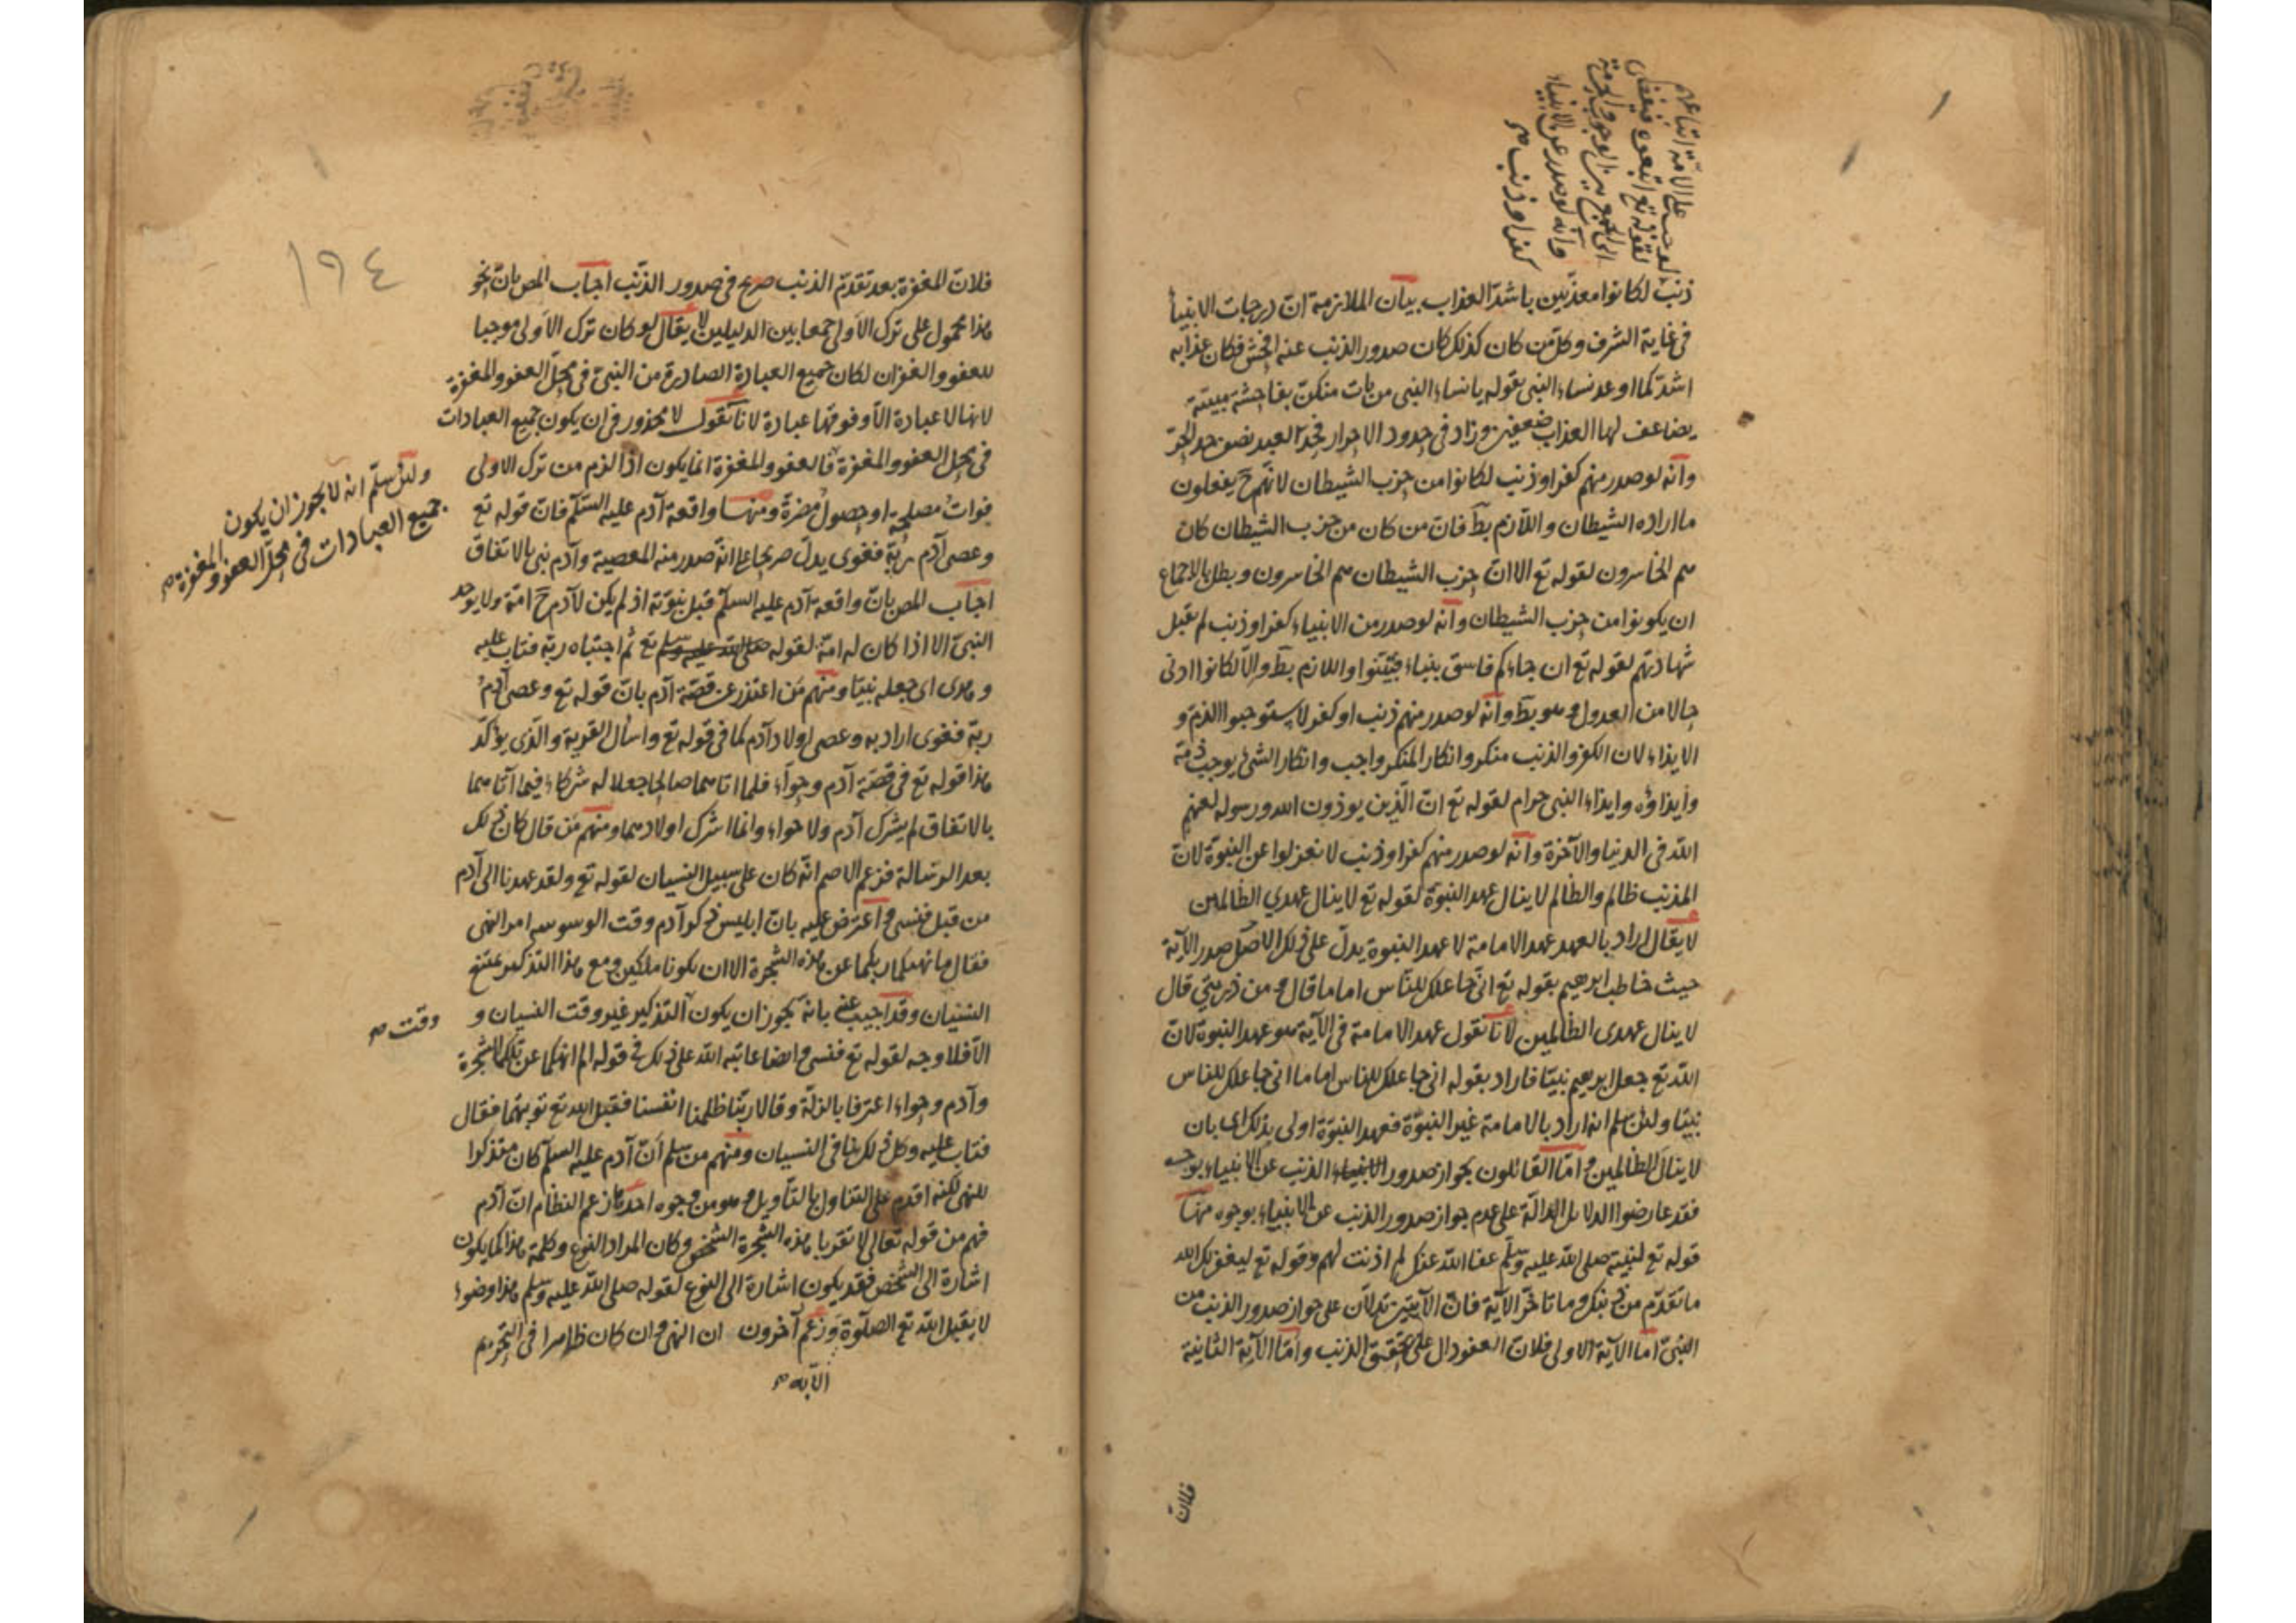 لوجب على الامة اتباعهم
لقوله تع اتبعوه فيفضى
الى الجمع بين الوجوب والحرمة
وانه لو صدر عن الانبياء
كفر او ذنب صح
ذنب لكانوا معذبين باشد العذاب بيان الملازمة ان درجات الانبيا
فى غاية الشرف وكل من كان كذلك كان صدور الذنب عنه افحش فكان عذابه
اشد كما اوعد نساء النبى بقوله يا نساء النبى من يات منكن بفاحشة مبينة
يضاعف لها العذاب ضعفين وزاد فى حدود الاحرار فحد العبد نصف حد الحر
وانه لو صدر منهم كفر او ذنب لكانوا من حزب الشيطان لانهم ح يفعلون
ما اراده الشيطان واللازم بط فان من كان من حزب الشيطان كان
هم الخاسرون لقوله تع الا ان حزب الشيطان هم الخاسرون وبطل بالاجماع
ان يكونوا من حزب الشيطان وانه لو صدر من الانبياء كفر او ذنب لم تقبل
شهادتهم لقوله تع ان جاءكم فاسق بنباء فتبينوا واللازم بط والا لكانوا ادنى
حالا من العدول وهو بط وانه لو صدر منهم ذنب او كفر لاستوجبوا الذم و
الايذاء لان الكفر والذنب منكر وانكار المنكر واجب وانكار الشئ يوجب ذمه
وايذاؤه وايذاء النبى حرام لقوله تع ان الذين يوذون الله ورسوله لعنهم
الله فى الدنيا والآخرة وانه لو صدر منهم كفر او ذنب لانعزلوا عن النبوة لان
المذنب ظالم والظالم لا ينال عهد النبوة لقوله تع لا ينال عهدي الظالمين
لا يقال اراد بالعهد عهد الامامة لا عهد النبوة يدل على ذلك الاصل صدر الآية
حيث خاطب ابرهيم بقوله تع انى جاعلك للناس اماما قال ومن ذريتي قال
لا ينال عهدى الظالمين لانا نقول عهد الامامة فى الآية هو عهد النبوة لان
الله تع جعل ابرهيم نبيا فاراد بقوله انى جاعلك للناس اماما انى جاعلك للناس
نبيا ولئن سلم انه اراد بالامامة غير النبوة فعهد النبوة اولى بذلك اى بان
لا ينال الظالمين واما القائلون بجواز صدور الانبياء الذنب عن الانبياء بوجه
فقد عارضوا الدلائل الدالة على عدم جواز صدور الذنب عن الانبياء بوجوه منها
قوله تع لنبيه صلى الله عليه وسلم عفا الله عنك لم اذنت لهم وقوله تع ليغفر لك الله
ما تقدم من ذنبك وما تاخر الآية فان الآيتين تدلان على جواز صدور الذنب من
النبى اما الآية الاولى فلان العفو دال على تحقق الذنب واما الآية الثانية
فلان
١٩٤
فلان المغفرة بعد تقدم الذنب صريح فى صدور الذنب اجاب المص بان نحو
هذا محمول على ترك الاولى جمعا بين الدليلين لا يقال لو كان ترك الاولى موجبا
للعفو والغفران لكان جميع العبادة الصادرة من النبى فى محل العفو والمغفرة
لانها لا عبادة الا وفوقها عبادة لانا نقول لا محذور فى ان يكون جميع العبادات
فى محل العفو والمغفرة فالعفو والمغفرة انما يكون اذا لزم من ترك الاولى
ولئن سلم انه لا يجوز ان يكون
جميع العبادات فى محل العفو والمغفرة صح
فوات مصلحة او حصول مضرة ومنها واقعة آدم عليه السلم فان قوله تع
وعصى آدم ربه فغوى يدل صريحا على انه صدر منه المعصية وآدم نبى بالاتفاق
اجاب المص بان واقعة آدم عليه السلم قبل نبوته اذ لم يكن لآدم ح امة ولا يوجد
النبى الا اذا كان له امة لقوله صلى الله عليه وسلم تع ثم اجتباه ربه فتاب عليه
وهدى اى جعله نبيا ومنهم من اعتذر عن قصة آدم بان قوله تع وعصى آدم
ربه فغوى اراد به وعصى اولاد آدم كما فى قوله تع واسأل القرية والذى يؤكد
هذا قوله تع فى قصة آدم وحواء فلما اتاهما صالحا جعلا له شركاء فيما آتاهما
بالاتفاق لم يشرك آدم ولا حواء وانما اشرك اولادهما ومنهم من قال كان ذلك
بعد الرسالة فزعم الاصم انه كان على سبيل النسيان لقوله تع ولقد عهدنا الى آدم
من قبل فنسى واعترض عليه بان ابليس ذكر آدم وقت الوسوسه امر النهى
فقال ما نهيكما ربكما عن هذه الشجرة الا ان تكونا ملكين ومع هذا التذكير يمتنع
النسيان وقد اجيب عنه بانه يجوز ان يكون التذكير غير وقت النسيان و
وقت صح
الا فلا وجه لقوله تع فنسى وايضا عاتبه الله على ذلك فى قوله الم انهكما عن تلكما الشجرة
وآدم وحواء اعترفا بالزلة وقالا ربنا ظلمنا انفسنا فقبل الله تع توبتهما فقال
فتاب عليه وكل ذلك ينافى النسيان ومنهم من سلم ان آدم عليه السلم كان متذكرا
للنهى لكنه اقدم على التناول بالتاويل وهو من وجوه احدها زعم النظام ان آدم
فهم من قوله تعالى لا تقربا هذه الشجرة الشخص وكان المراد النوع وكلمة هذا كما يكون
اشارة الى الشخص فقد يكون اشارة الى النوع لقوله صلى الله عليه وسلم هذا وضوء
لا يقبل الله تع الصلوة وزعم آخرون ان النهى وان كان ظاهرا فى التحريم
الا به صح